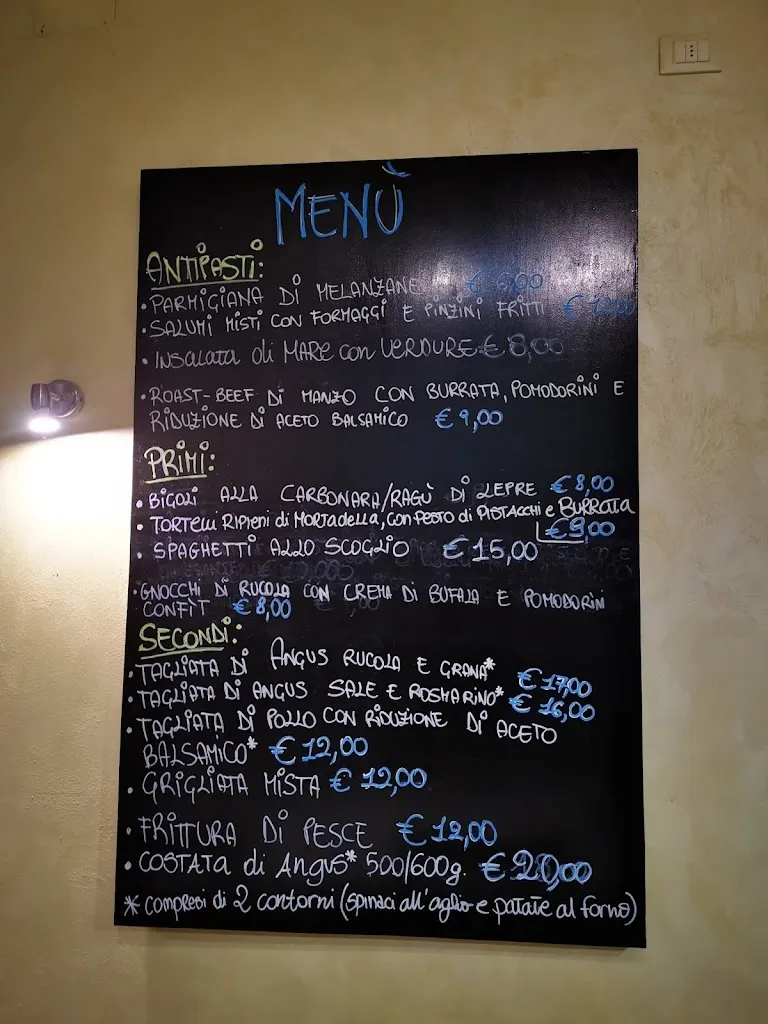 MENÙ
ANTIPASTI:
• PARMIGIANA DI MELANZANE € 6,00
• SALUMI MISTI CON FORMAGGI E PINZINI FRITTI € 12,00
• INSALATA di MARE con VERDURE € 8,00
• ROAST-BEEF DI MANZO CON BURRATA, POMODORINI E
RIDUZIONE DI ACETO BALSAMICO € 9,00
PRIMI:
• BIGOLI ALLA CARBONARA/RAGÙ DI LEPRE € 8,00
• TORTELLI RIPIENI di MORTADELLA, CON PESTO di PISTACCHI e BURRATA
€ 9,00
• SPAGHETTI ALLO SCOGLIO € 15,00
• GNOCCHI DI RUCOLA CON CREMA DI BUFALA E POMODORINI
CONFÌT € 8,00
SECONDI:
• TAGLIATA DI ANGUS RUCOLA E GRANA* € 17,00
• TAGLIATA DI ANGUS SALE E ROSMARINO* € 16,00
• TAGLIATA DI POLLO CON RIDUZIONE DI ACETO
BALSAMICO* € 12,00
• GRIGLIATA MISTA € 12,00
• FRITTURA DI PESCE € 12,00
• COSTATA di ANGUS* 500/600g. € 20,00
* compresi di 2 contorni (spinaci all'aglio e patate al forno)